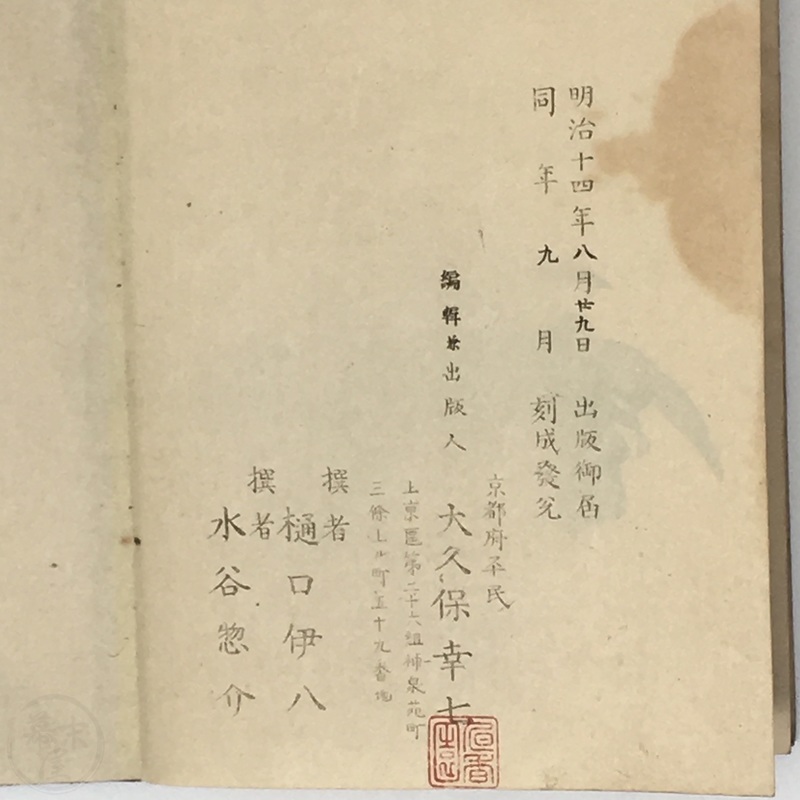 明治十四年八月廿九日 出版御届
同年九月 刻成發兌
編輯兼出版人
京都府平民
大久保幸七
上東區第二十六組神泉苑町
三條上ル町五十九番地
撰者
樋口伊八
撰者
水谷惣介